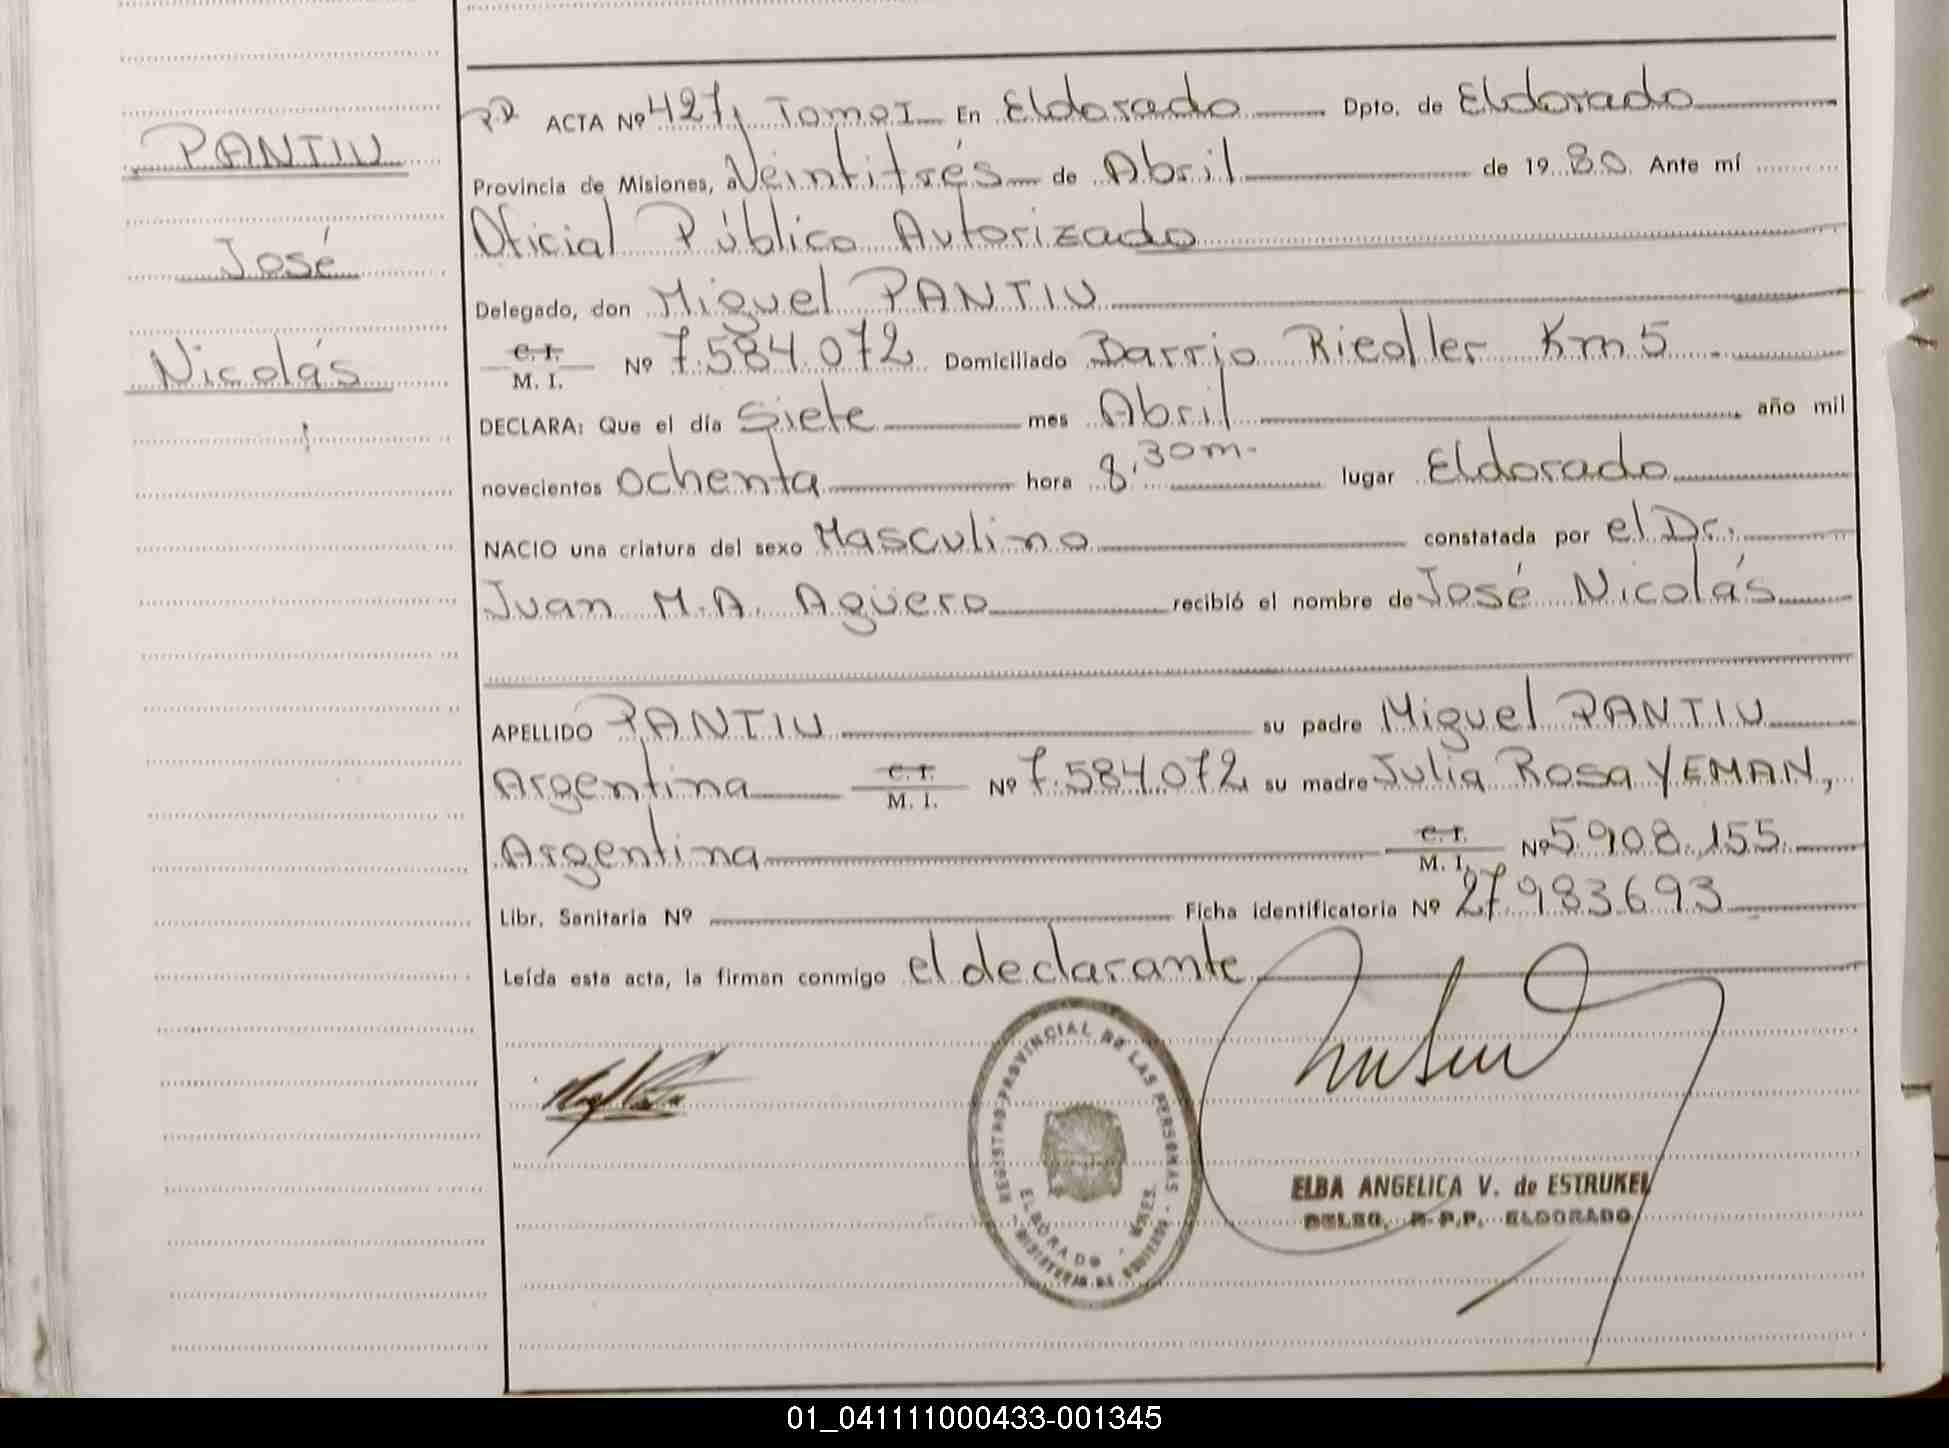 PANTIU
José
Nicolás
ACTA Nº 427, Tomo I En Eldorado Dpto. de Eldorado
Provincia de Misiones, a Veintitrés de Abril de 19 80 Ante mí
Oficial Público Autorizado
Delegado, don Miguel PANTIU
C. I.
M. I. Nº 7.584.072 Domiciliado Barrio Riedller Km 5
DECLARA: Que el día Siete mes Abril año mil
novecientos ochenta hora 8,30 m. lugar Eldorado
NACIO una criatura del sexo Masculino constatada por el Dr.
Juan M.A. Agüero recibió el nombre de José Nicolás
APELLIDO PANTIU su padre Miguel PANTIU
Argentina C. I. M. I. Nº 7.584.072 su madre Julia Rosa YEMAN,
Argentina C. I. M. I. Nº 5.908.155
Libr. Sanitaria Nº Ficha identificatoria Nº 27.983.693
Leída esta acta, la firman conmigo el declarante
REGISTRO PROVINCIAL DE LAS PERSONAS
ELDORADO - MNES.
MINISTERIO DE GOBIERNO
ELBA ANGELICA V. de ESTRUKEL
DELEG. R.P.P. ELDORADO
01_041111000433-001345